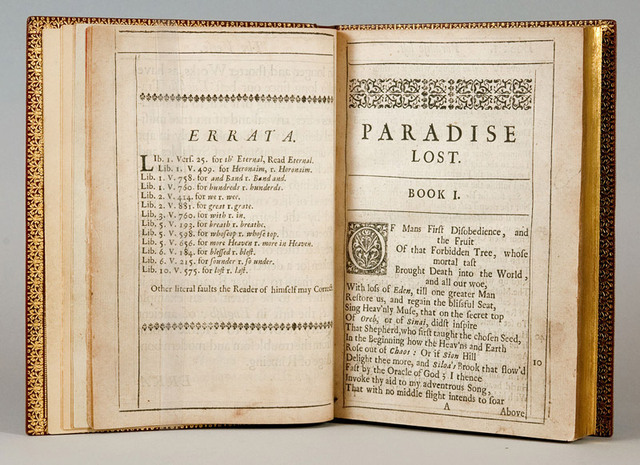 ERRATA.
LIb. 1. Vers. 25. for th' Eternal, Read Eternal.
Lib. 1. V. 409. for Heronaim, r. Horonaim.
Lib. 1. V. 758. for and Band r. Band and.
Lib. 1. V. 760. for hundreds r. hunderds.
Lib. 2. V. 414. for we r. wee.
Lib. 2. V. 881. for great r. grate.
Lib. 3. V. 760. for with r. in.
Lib. 5. V. 193. for breath r. breathe.
Lib. 5. V. 598. for whoseop r. whose top.
Lib. 5. V. 656. for more Heaven r. more in Heaven.
Lib. 6. V. 184. for blessed r. blest.
Lib. 6. V. 215. for sounder r. so under.
Lib. 10. V. 575. for lost r. last.
Other literal faults the Reader of himself may Correct
PARADISE
LOST.
BOOK I.
OF Mans First Disobedience, and
the Fruit
Of that Forbidden Tree, whose
mortal tast
Brought Death into the World,
and all our woe,
With loss of Eden, till one greater Man
Restore us, and regain the blissful Seat,
Sing Heav'nly Muse, that on the secret top
Of Oreb, or of Sinai, didst inspire
That Shepherd, who first taught the chosen Seed,
In the Beginning how the Heav'ns and Earth
Rose out of Chaos: Or if Sion Hill
10
Delight thee more, and Siloa's Brook that flow'd
Fast by the Oracle of God; I thence
Invoke thy aid to my adventrous Song,
That with no middle flight intends to soar
A
Above